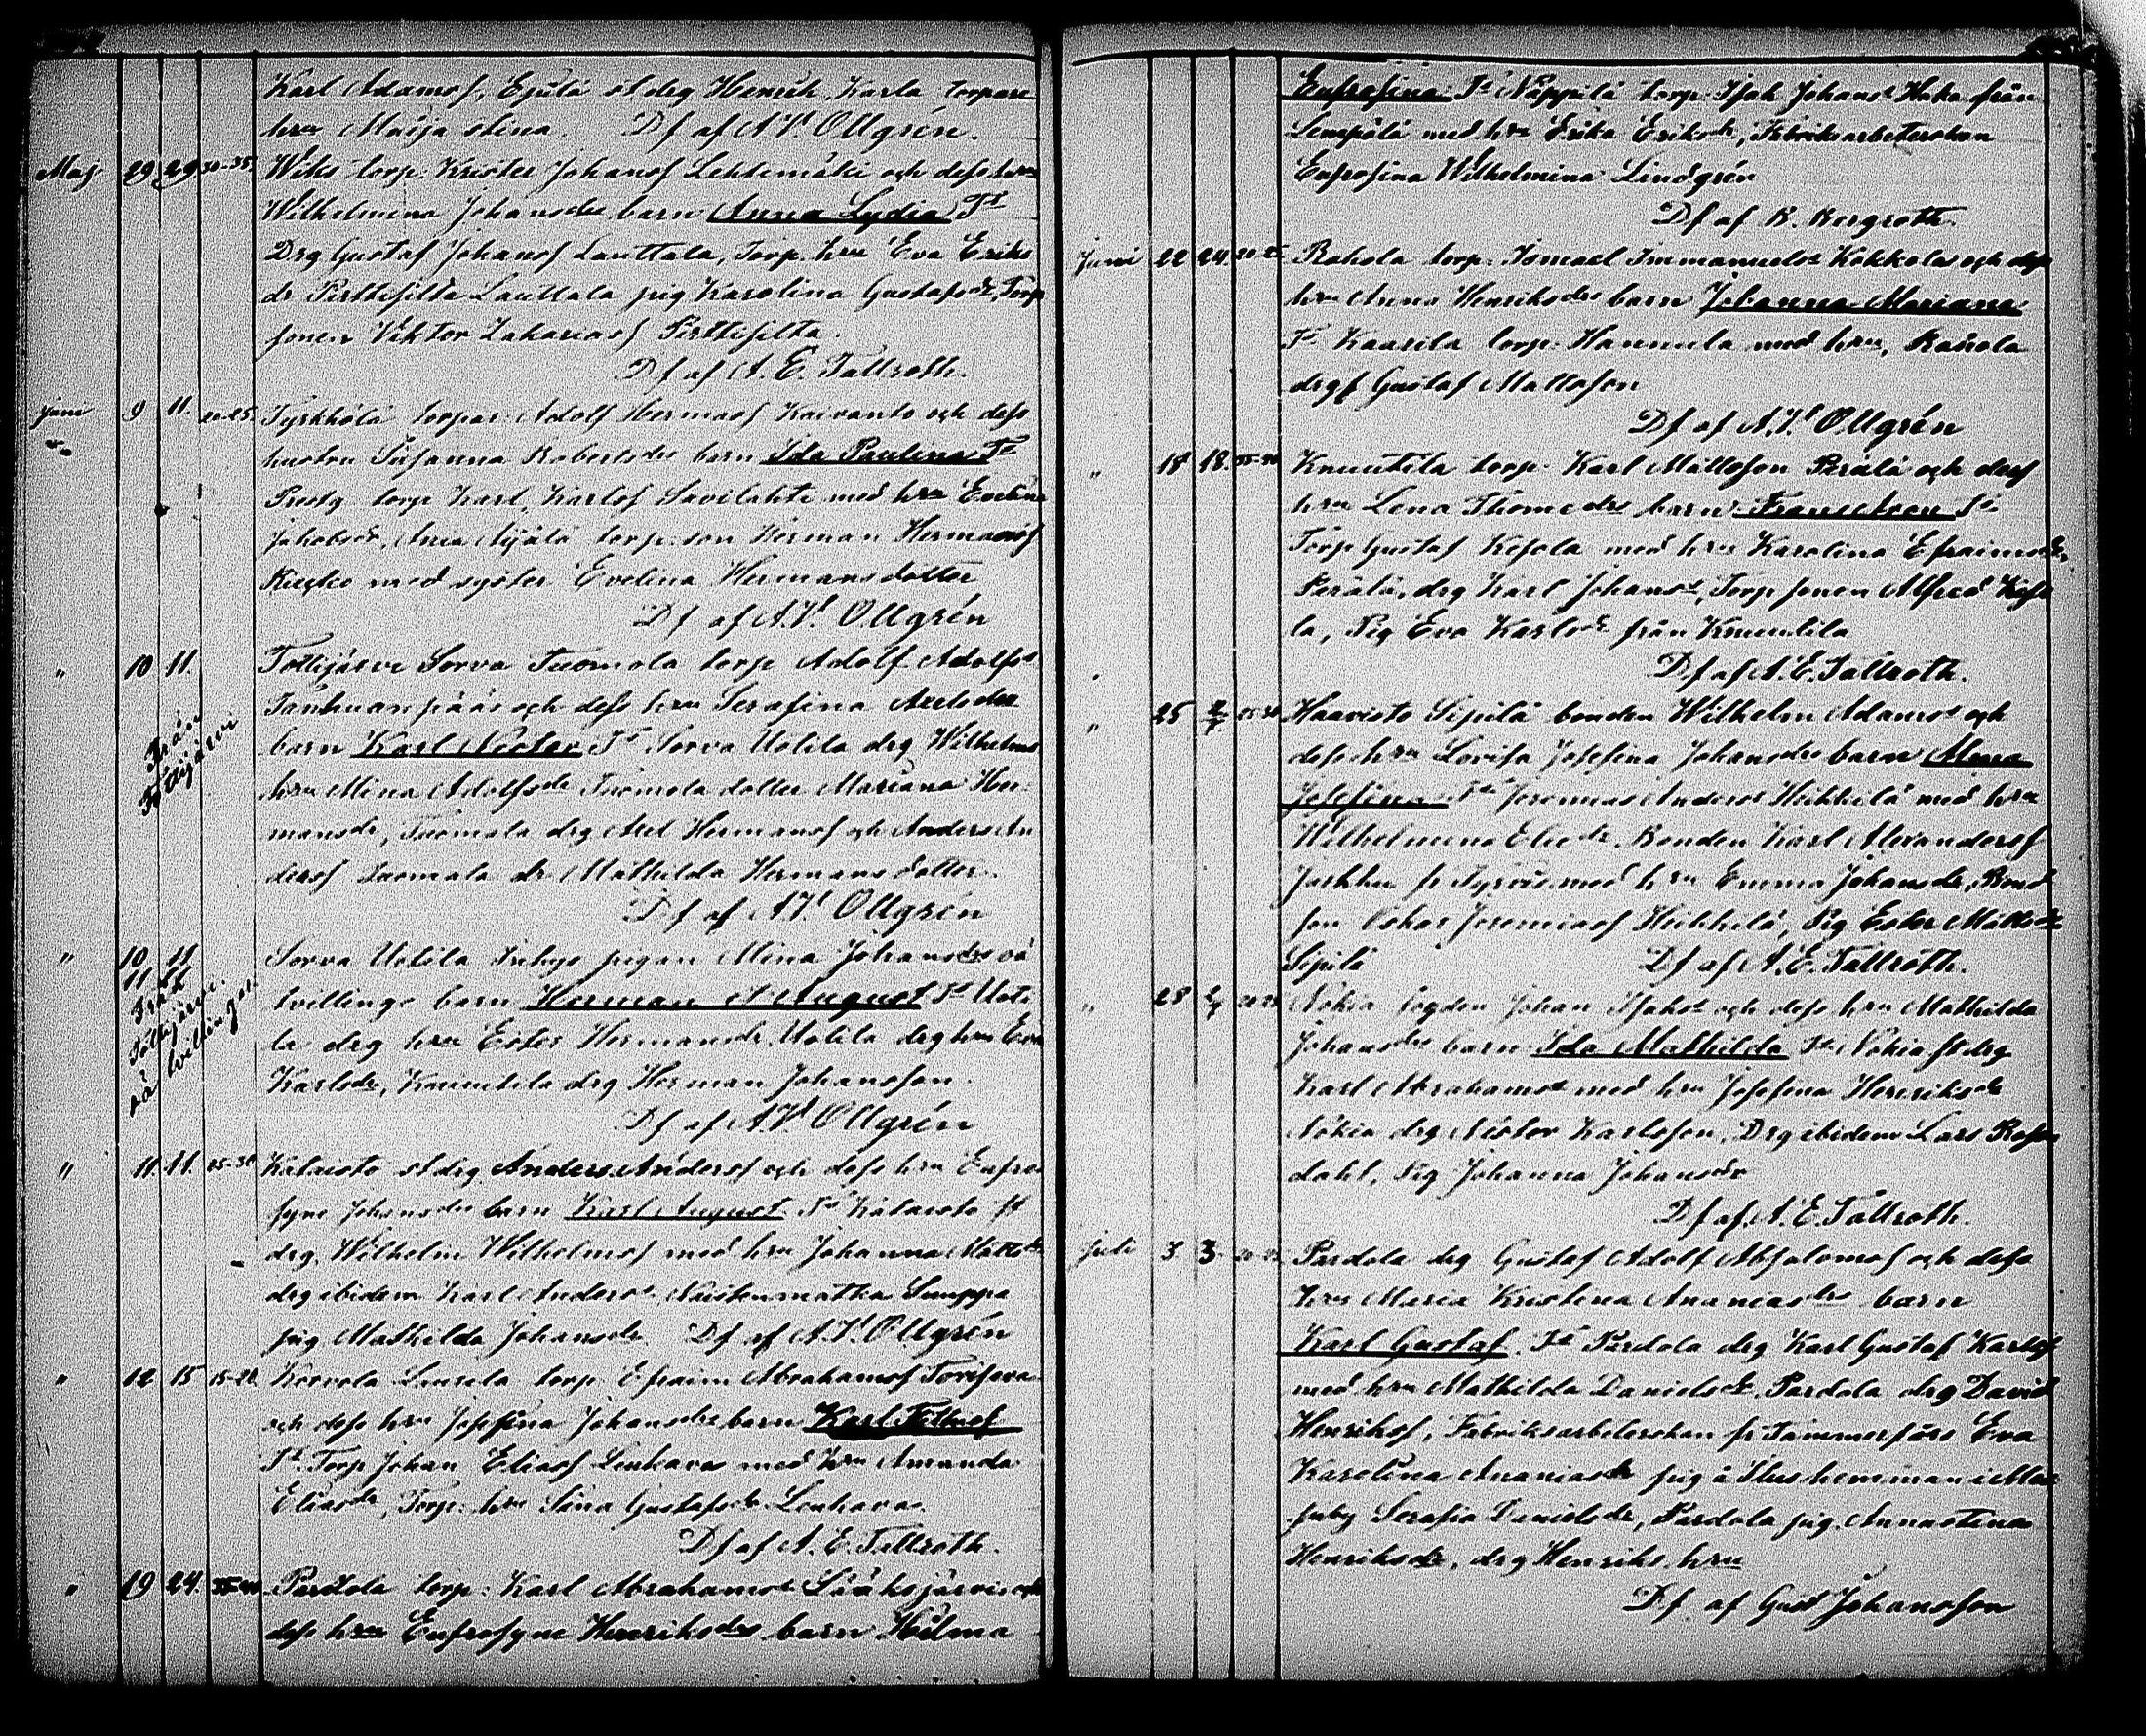 Karl Adamss, Ejulä st drg Henrik Karla torpare
hru Maija Stina. Df af A.V. Ollgrén.
Maj 29 29 30-35 Wiks torp: Krister Johanss Lehtimäki och dess hru
Wilhelmina Johansdrs barn Anna Lydia Ts
Drg Gustaf Johanss Lauttala, Torp. hru Eva Eriks
dr Pirttisilta Lauttala pig Karolina Gustafsdr, Torp
sonen Viktor Zakariass Pirttisilta.
Df af A. E. Tallroth.
Juni 9 11. 20-25. Tyrkkölä torpar: Adolf Hermass Kaivanto och dess
hustru Susanna Robertsdrs barn Ida Paulina Ts
Prestg torp Karl Karlss Savilahti med hru Evelina
Jakobsdr, Ania Äijälä torp: son Herman Hermanss
Kucko med syster Evelina Hermansdotter
Df af A.V. Ollgrén
" 10 11. Tottijärvi Sorva Tuomola torp Adolf Adolfss
Från Tottijärvi
Tanhuanpää och dess hru Serafina Axelsdrs
barn Karl Nestor Ts Sorva Uotila drg Wilhelms
hru Mina Adolfsdr Tuomola dotter Mariana Her-
mansdr, Tuomola drg Axel Hermanss och Anders An
derss Tuomala dr Mathilda Hermansdotter.
Df af A.V. Ollgrén
" 10 11 Sorva Uotila Inhys pigan Mina Johansdrs oä
11 11 Från Tottijärvi. oä tvillingar.
tvillinge barn Herman & August Ts Uoti
la drg hru Ester Hermansdr, Uotila drg hru Eva
Karlsdr, Knuutila drg Herman Johansson.
Df af A.V. Ollgrén
" 11. 11. 25-30 Kataisto st drg Anders Anderss och dess hru Eufro
syne Johansdrs barn Karl August Ts Kataisto st
drg. Wilhelm Wilhelmss med hru Johanna Mattsdr
drg ibidem Karl Anderss, Naistenmatka Sumppa
pig Mathilda Johansdr. Df af A.V. Ollgrén
" 12 15 15-20. Korvola Luusela torp Efraim Abrahamss Toriseva
och dess hru Josefina Johansdrs barn Karl
Ts. Torp Johan Eliass Linhava med hru Amanda
Eliasdr, Torp: hru Stina Gustafsdr Linhava.
Df af A. E. Tallroth.
" 19 24. 35-40 Pardola torp: Karl Abrahamss Sääksjärvi och
dess hru Eufrosyne Henriksdrs barn Hilma
Eufrosina Ts Näppilä torp Isak Johanss Haka från
Lempälä med hru Erika Eriksdr, Fabriksarbeterskan
Eufrosina Wilhelmina Lindgrén
Df af K. Bergroth.
Juni 22 24. 20-25 Rahola torp: Ismael Immanuelss Kokkola och dess
hru Anna Henriksdrs barn Johanna Mariana
Ts Kaarila torp: Hannula med hru, Rahola
drgs Gustaf Mattsson
Df af A.V. Ollgrén
" 18 18. 35-40 Knuutila torp: Karl Mattsson Perälä och dess
hru Lena Thomedrs barn Frans Ivar Ts
Torp Gustaf Kesola med hru Karolina Efraimsdr,
Perälä, drg Karl Johanss, Torp sonen Alfred Keso
la, Pig Eva Karlsdr från Knuutila
Df af A. E. Tallroth.
" 25 2/7 25-30 Haavisto Sipilä bonden Wilhelm Adamss och
dess hru Lovisa Josefina Johansdrs barn Alma
Josefina Ts Jeremias Anderss Heikkilä med hru
Wilhelmina Eliedr, Bonden Karl Alexanderss
Jaskka fr Tyrvis med hru Emma Johansdr, Bond
son Oskar Jeremiass Heikkilä, Pig Ester Mattsdr
Sipilä Df af A. E. Tallroth.
" 28 2/7 20-25 Nokia fogden Johan Isakss och dess hru Mathilda
Johansdrs barn Ida Mathilda Ts Nokia st drg
Karl Abrahamss med hru Josefina Henriksdr
Nokia drg Nestor Karlsson, Drg ibidem Lars Rosen
dahl, Pig Johanna Johansdr
Df af A. E. Tallroth.
Juli 3 3. 20-25 Pardola drg Gustaf Adolf Absalomss och dess
hru Maria Kristina Ananiasdrs barn
Karl Gustaf. Ts Pardola drg Karl Gustaf Karlss
med hru Mathilda Danielsdr, Pardola drg David
Henrikss, Fabriksarbeterskan fr Tammerfors Eva
Karolina Ananiasdr pig å Ilus hemman i Mas
suby Serafia Danielsdr, Pardola pig. Annastina
Henriksdr, drg Henriks hru
Df af Gust Johansson